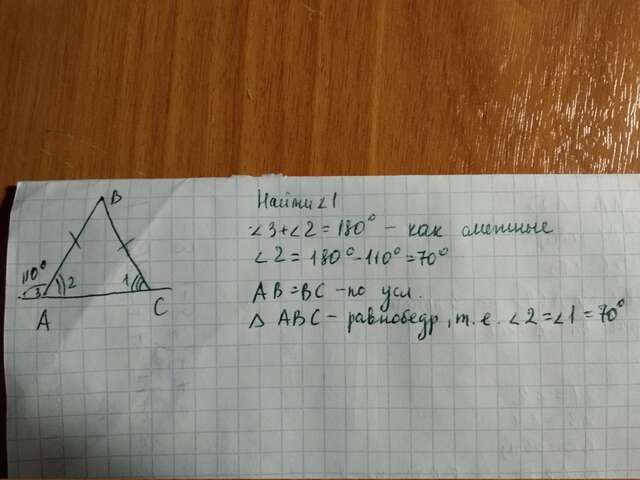 B
110°
3
2
1
A
C
Найти ∠1
∠3+∠2=180° - как смежные
∠2=180°-110°=70°
AB=BC -по усл.
△ ABC - равнобедр, т.е. ∠2=∠1=70°